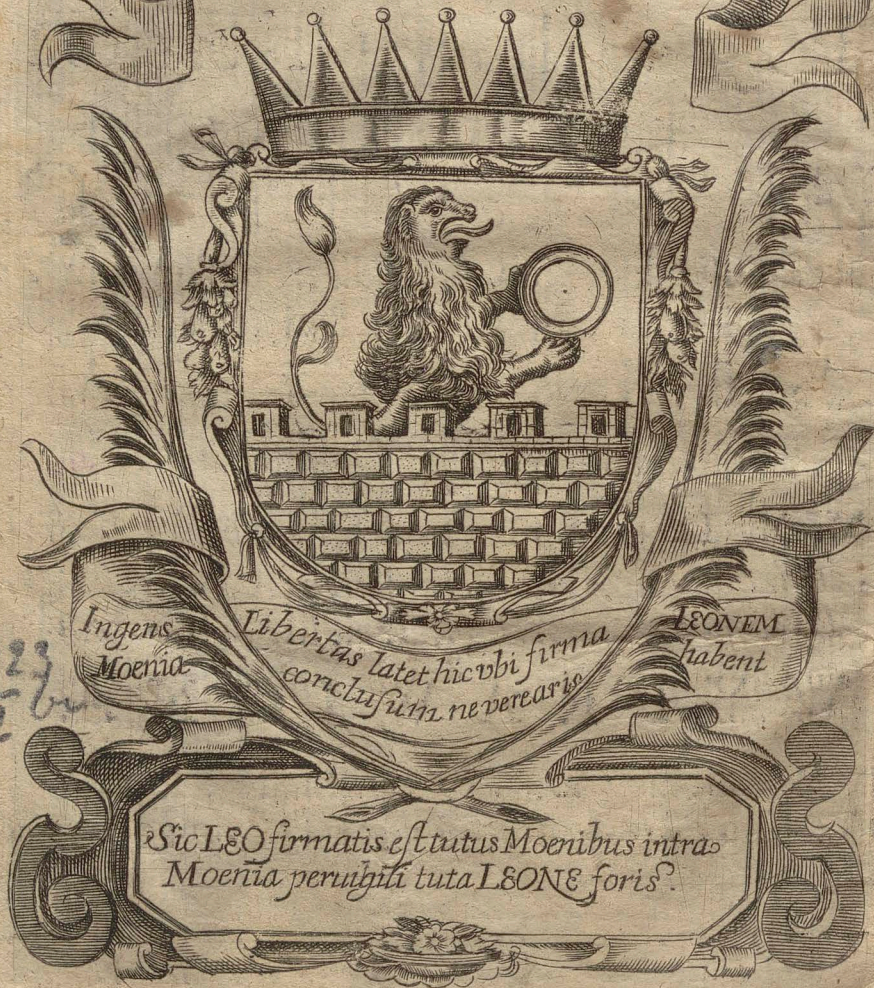 Ingens Libertas latet hic vbi firma LEONEM
Moenia conclusum ne verearis habent
Sic LEO firmatis est tutus Moenibus intra
Moenia peruigili tuta LEONE foris.